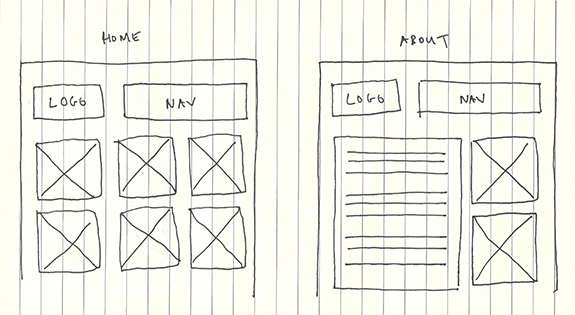 HOME
LOGO
NAV
ABOUT
LOGO
NAV